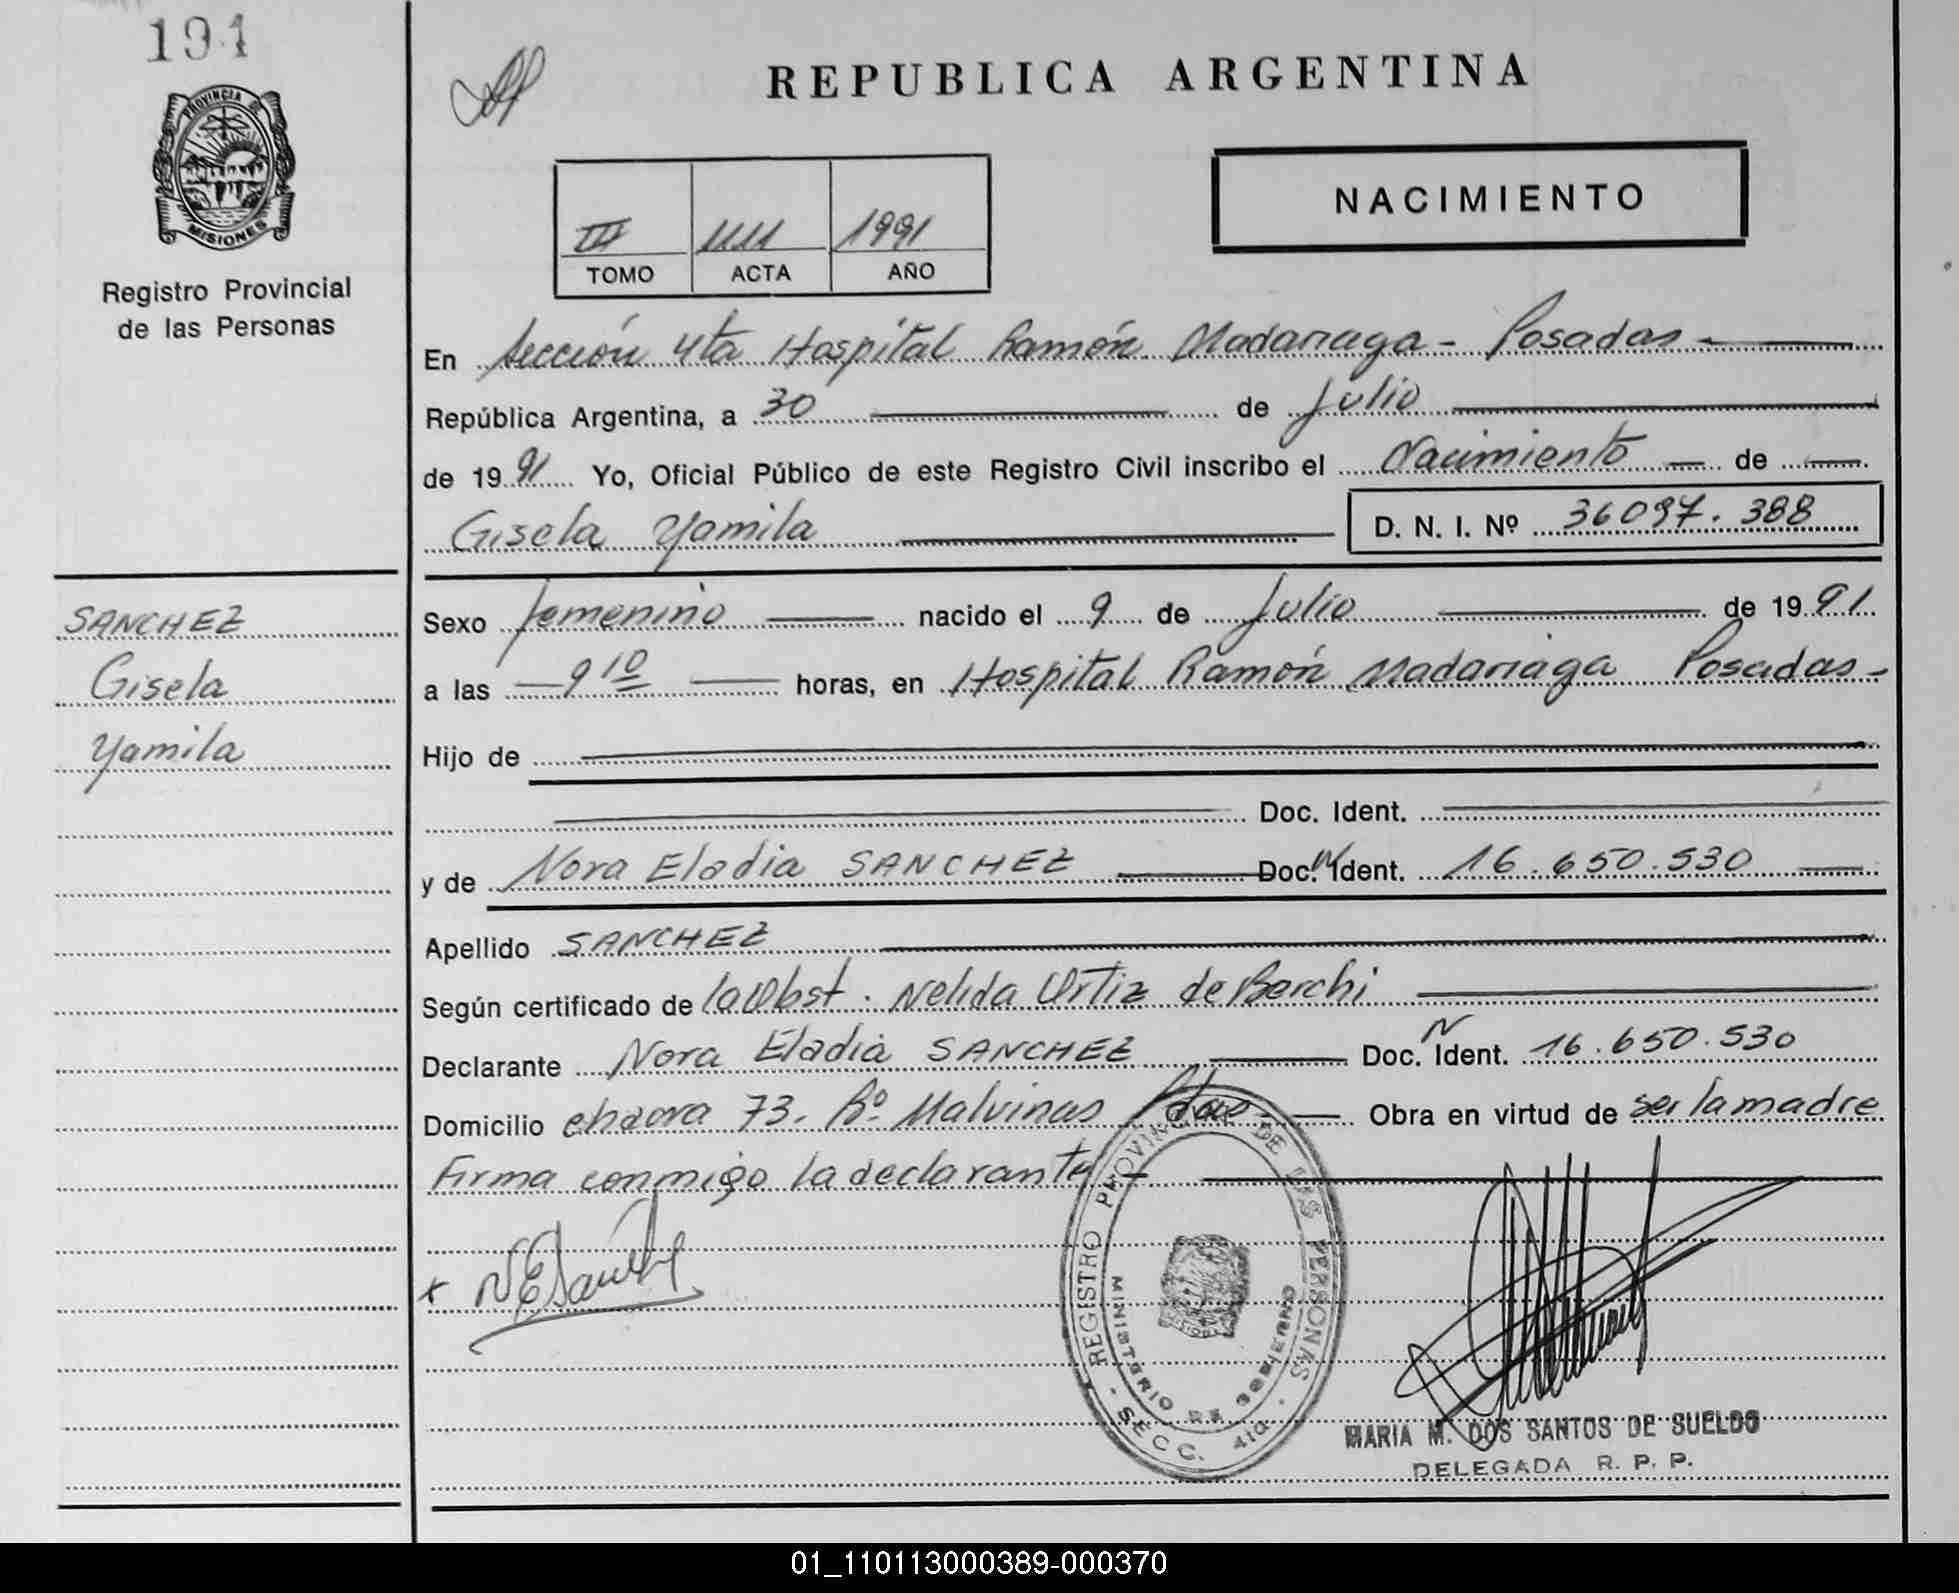 191
PROVINCIA DE
MISIONES
Registro Provincial
de las Personas
REPUBLICA ARGENTINA
NACIMIENTO
III 1111 1991
TOMO ACTA AÑO
En Sección 4ta Hospital Ramón Madariaga - Posadas -
República Argentina, a 30 de Julio
de 1991 Yo, Oficial Público de este Registro Civil inscribo el Nacimiento de
Gisela Yamila D. N. I. Nº 36097.388
SANCHEZ
Gisela
Yamila
Sexo femenino nacido el 9 de Julio de 1991
a las 9 10 horas, en Hospital Ramón Madariaga Posadas-
Hijo de
Doc. Ident.
y de Nora Eladia SANCHEZ Doc. N Ident. 16.650.530
Apellido SANCHEZ
Según certificado de la Obst. Nelida Ortiz de Berchi
Declarante Nora Eladia SANCHEZ Doc. N Ident. 16.650.530
Domicilio chacra 73. Bº Malvinas Pdas- Obra en virtud de ser la madre
Firma conmigo la declarante -
x NESanchez
REGISTRO PROVINCIAL DE LAS PERSONAS
MINISTERIO DE GOBIERNO
SECC. 4ta
MARIA M. DOS SANTOS DE SUELDO
DELEGADA R. P. P.
01_110113000389-000370